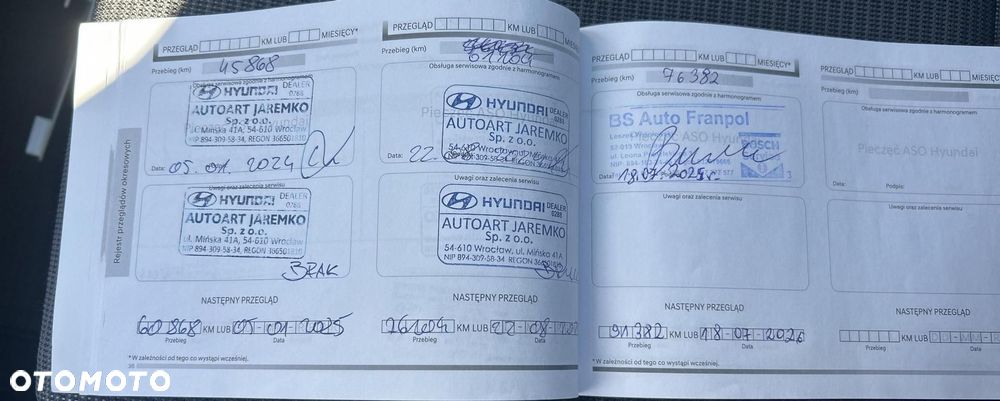 PRZEGLĄD KM LUB MIESIĘCY*
Przebieg (km) 45868
Obsługa serwisowa zgodnie z harmonogramem
HYUNDAI DEALER 0288
AUTOART JAREMKO
Sp. z o.o.
ul. Mińska 41A, 54-610 Wrocław
NIP 894-309-58-34, REGON 366501810
Data: 05.01.2024
Uwagi oraz zalecenia serwisu
HYUNDAI DEALER 0288
AUTOART JAREMKO
Sp. z o.o.
ul. Mińska 41A, 54-610 Wrocław
NIP 894-309-58-34, REGON 366501810
BRAK
NASTĘPNY PRZEGLĄD
60868 KM LUB 05-01-2025
Przebieg Data
*W zależności od tego co wystąpi wcześniej.
Rejestr przeglądów okresowych
PRZEGLĄD KM LUB MIESIĘCY*
Przebieg (km)
Obsługa serwisowa zgodnie z harmonogramem
HYUNDAI DEALER 0288
AUTOART JAREMKO
Sp. z o.o.
Data: 22.
Uwagi oraz zalecenia serwisu
HYUNDAI DEALER 0288
AUTOART JAREMKO
Sp. z o.o.
54-610 Wrocław, ul. Mińska 41A
NIP 894-309-58-34 REGON
NASTĘPNY PRZEGLĄD
KM LUB 22-08-
Przebieg Data
PRZEGLĄD KM LUB MIESIĘCY*
Przebieg (km) 76382
Obsługa serwisowa zgodnie z harmonogramem
BS Auto Franpol
BOSCH
Data: 18.07.2025r.
Uwagi oraz zalecenia serwisu
NASTĘPNY PRZEGLĄD
91382 KM LUB 18-07-2026
Przebieg Data
*W zależności od tego co wystąpi wcześniej.
PRZEGLĄD KM LUB MIESIĘCY*
Przebieg (km)
Obsługa serwisowa zgodnie z harmonogramem
Pieczęć ASO Hyundai
Data: Podpis:
Uwagi oraz zalecenia serwisu
NASTĘPNY PRZEGLĄD
KM LUB
Przebieg Data
OTOMOTO